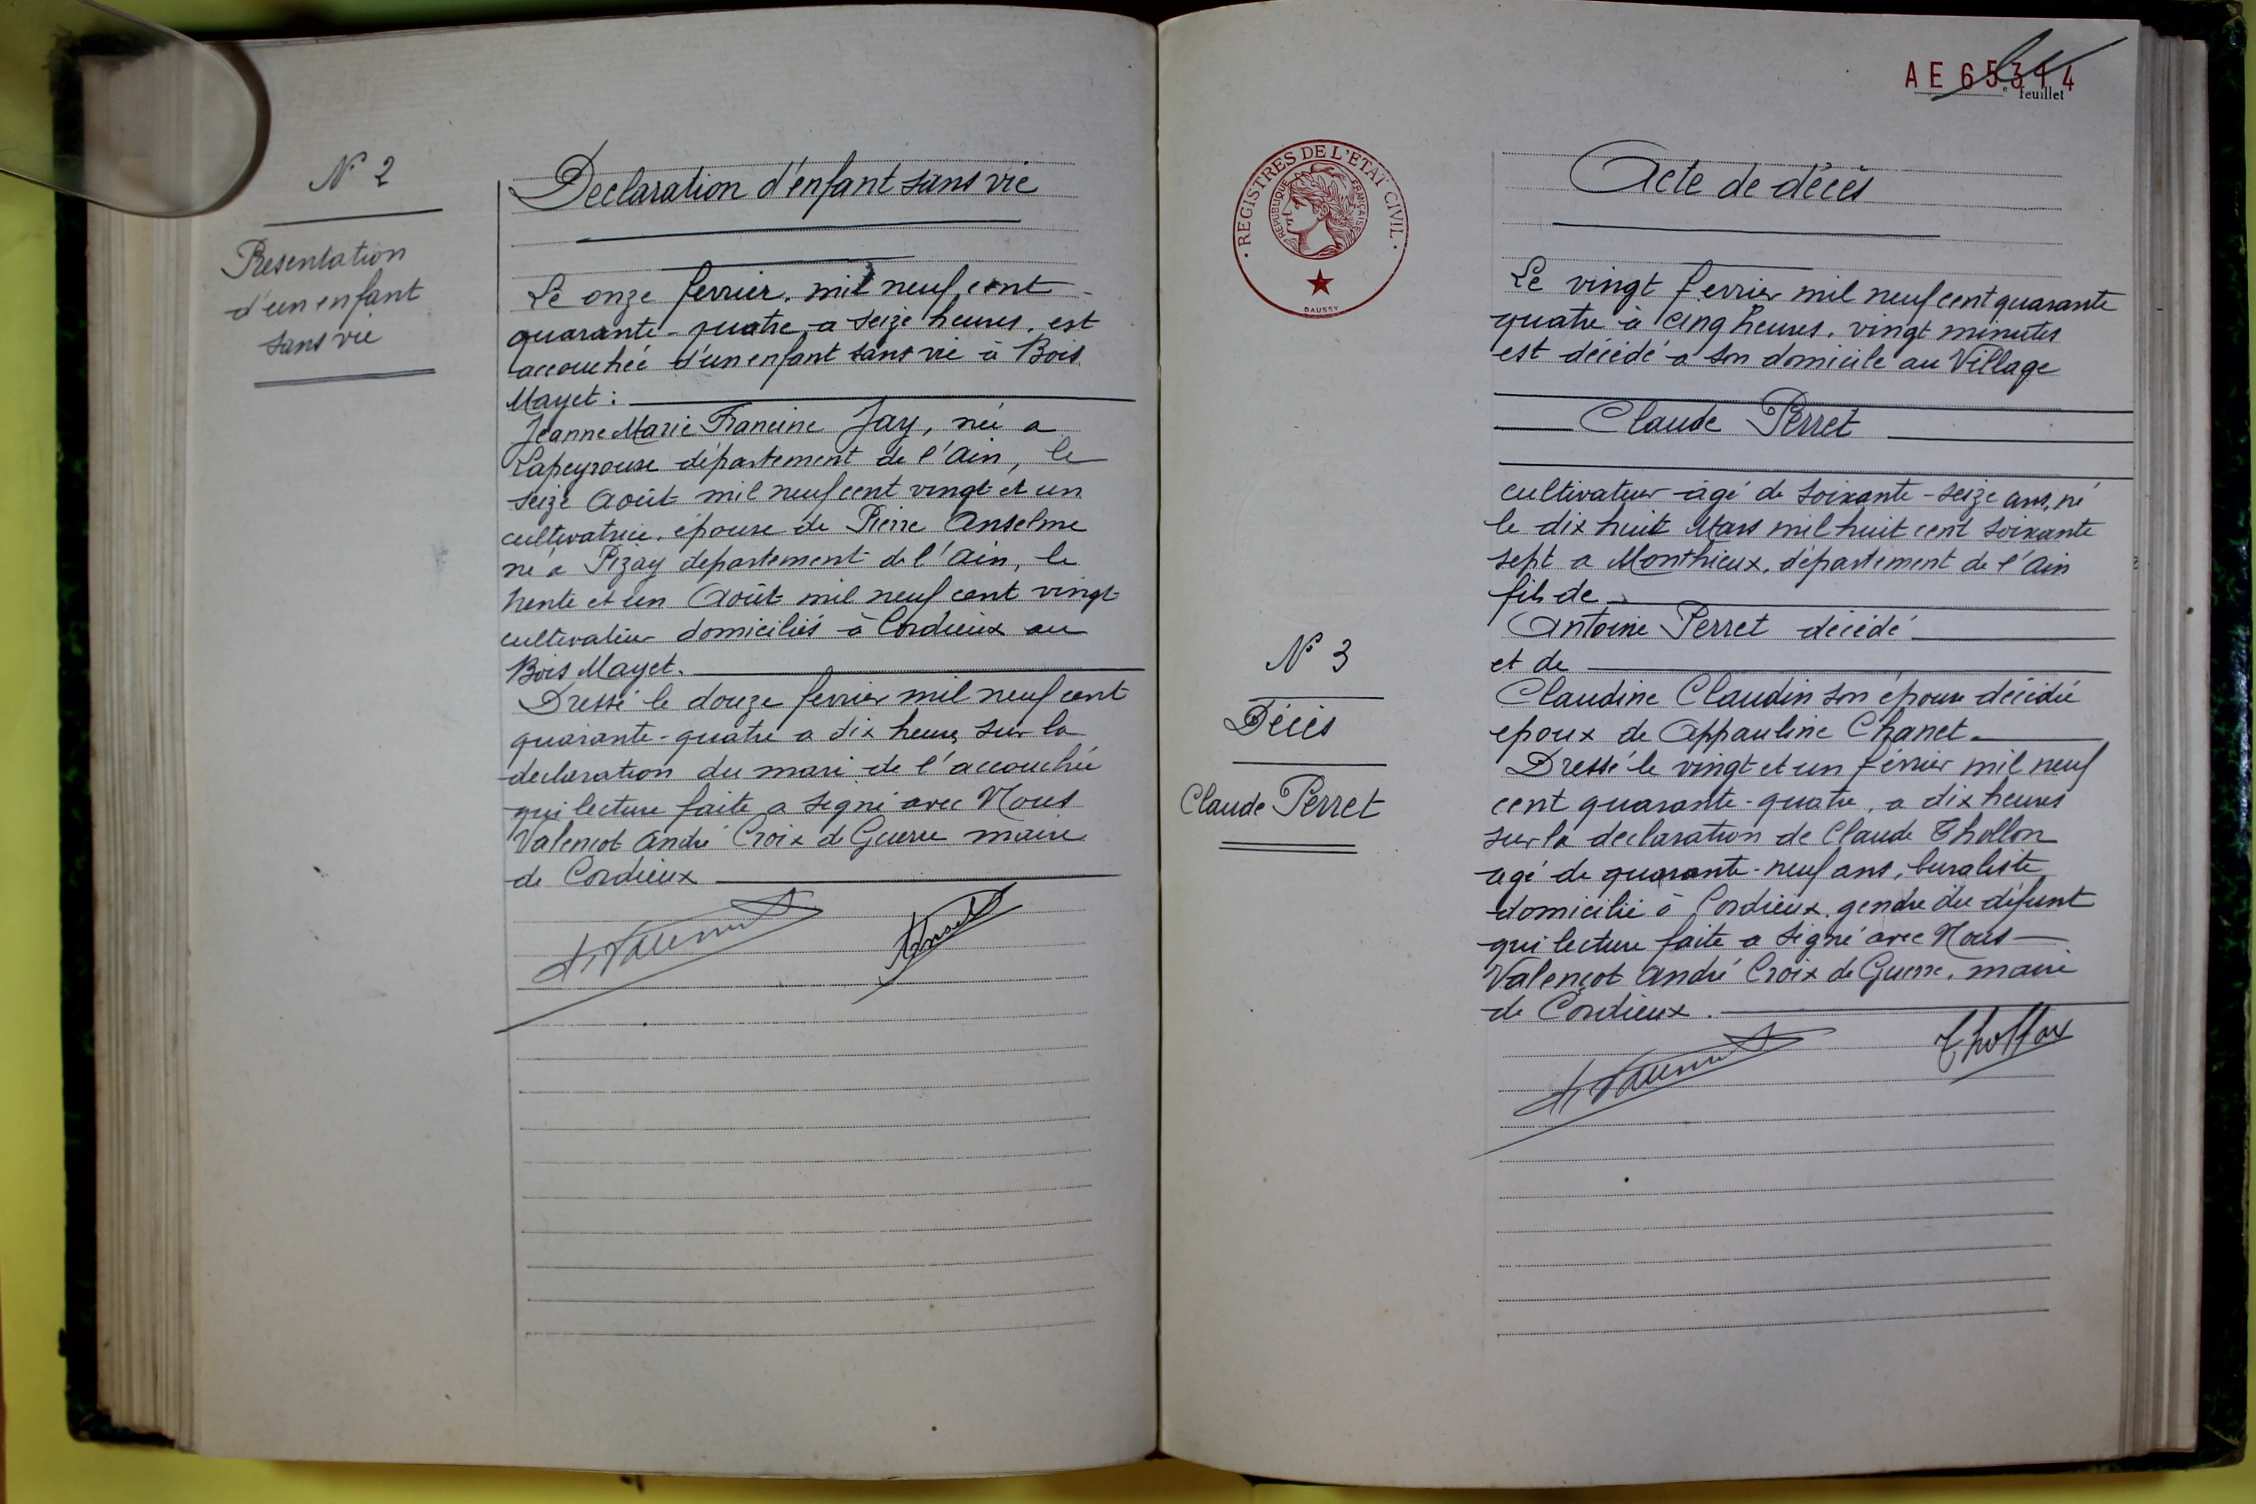 N° 2
Presentation
d'un enfant
sans vie
Declaration d'enfant sans vie
Le onze fevrier, mil neuf cent
quarante-quatre, a seize heures, est
accouchée d'un enfant sans vie à Bois
Mayet :
Jeanne Marie Francine Jay, née a
Lapeyrouse département de l'Ain, le
seize Août mil neuf cent vingt et un
cultivatrice, épouse de Pierre Anselme
né a Pizay département de l'Ain, le
trente et un Août mil neuf cent vingt
cultivateur domiciliés à Cordieux au
Bois Mayet.
Dressé le douze fevrier mil neuf cent
quarante-quatre a dix heures sur la
declaration du mari de l'accouchée
qui lecture faite a signé avec Nous
Valençot André Croix de Guerre maire
de Cordieux
AE 65314
e feuillet
REGISTRES DE L'ETAT CIVIL
REPUBLIQUE FRANÇAISE
DAUSSY
Acte de décès
Le vingt fevrier mil neuf cent quarante
quatre à cinq heures, vingt minutes
est décédé a son domicile au Village
Claude Perret
cultivateur âgé de soixante-seize ans, né
le dix huit Mars mil huit cent soixante
sept a Monthieux, département de l'Ain
fils de
Antoine Perret décédé
et de
Claudine Claudin son épouse décédée
epoux de Appauline Chanet
Dressé le vingt et un février mil neuf
cent quarante-quatre, a dix heures
sur la declaration de Claude Thollon
agé de quarante-neuf ans, buraliste
domicilié à Cordieux, gendre du défunt
qui lecture faite a signé avec Nous
Valençot André Croix de Guerre, maire
de Cordieux.
Thollon
N° 3
Décès
Claude Perret